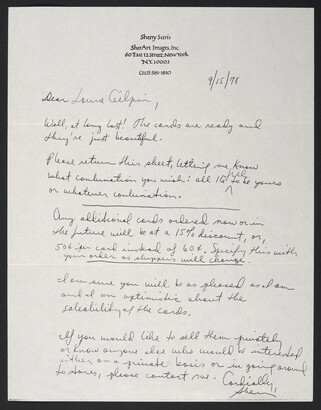 Sherry Suris
SherArt Images, Inc.
60 East 12 Street, New York
N.Y. 10003
(212) 581-1810
9/15/78
Dear Laura Gilpin,
Well, at long last! The cards are ready and
they're just beautiful.
Please return this sheet, letting me know
what combination you wish: all to be yours
or whatever combination.
Any additional cards ordered now or in
the future will be at a 15% discount, or,
50¢ per card instead of 60¢. Specify this with
your order as shippers will change.
I am sure you will be as pleased as I am
and I am optimistic about the
saleability of the cards.
If you would like to sell them privately
or know anyone else who would be interested
either on a private basis or in going around
to stores, please contact me. Cordially,
Sherry